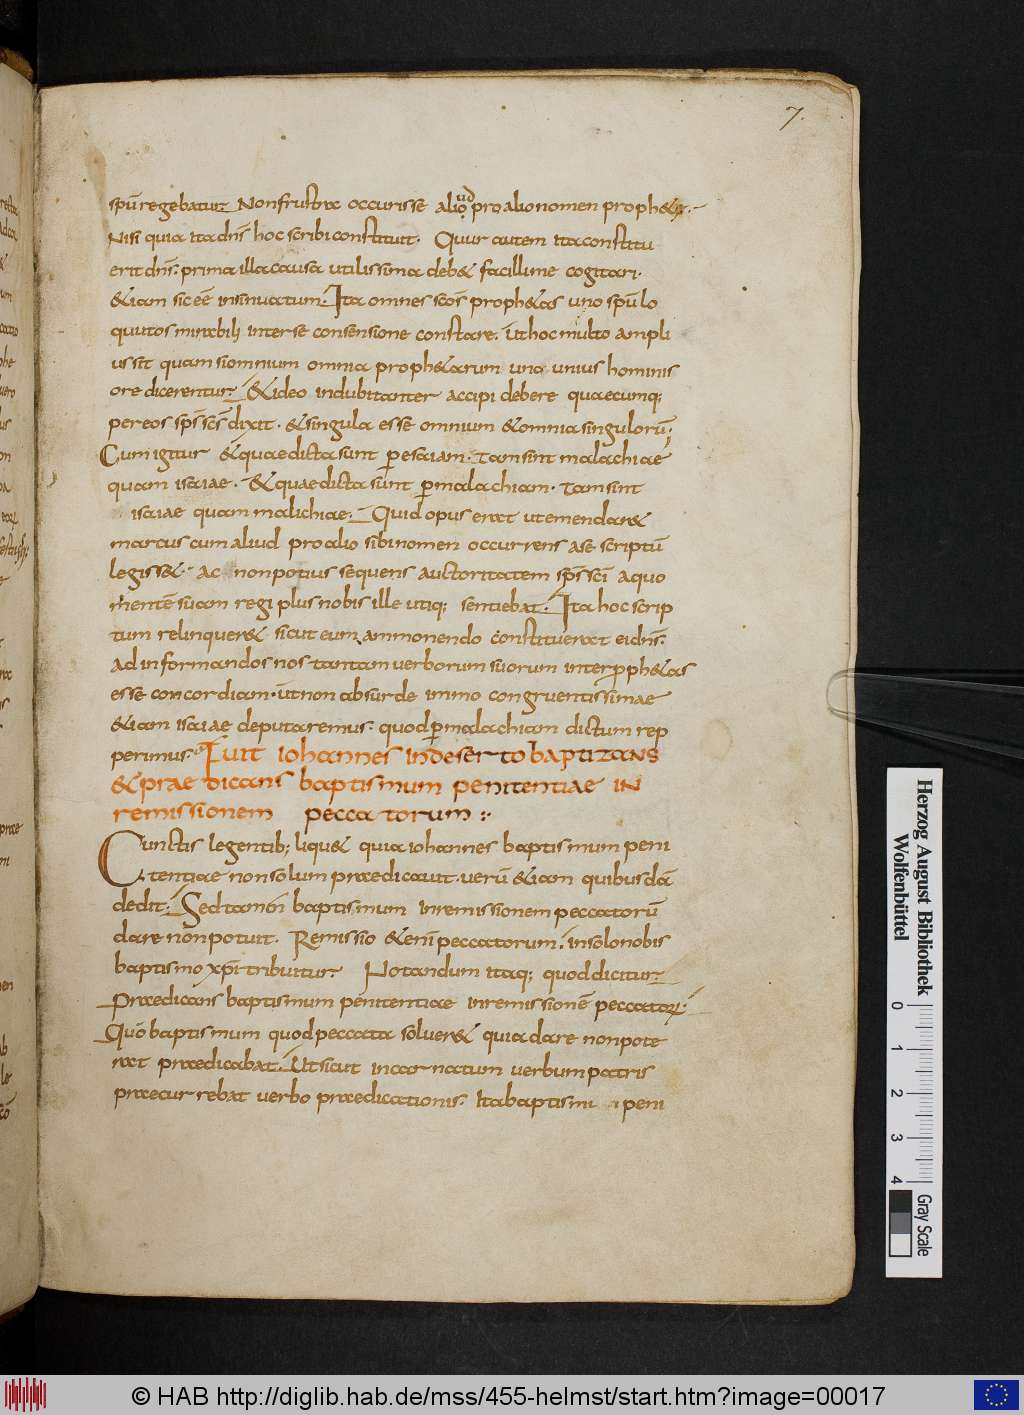 7.
spū regebatur Non frustra occurisse aliud pro alio nomen prophetę.
Nisi quia ita dn̄s hoc scribi constituit. Quur autem ita constitu
erit dn̄s. prima illa causa utilissima deb& facillime cogitari.
&iam sic eē insinuatum. Ita omnes scōs proph&as uno spū lo
quutos mirabili inter se consensione constare. ut hoc multo ampli
us sit quam si omnium omnia proph&arum uno unius hominis
ore dicerentur. &ideo indubitanter accipi debere quaecumq;
per eos sp̄s sc̄s dixit. & singula esse omnium & omnia singulorū;
Cum igitur & quae dicta sunt p esaiam. tam sint malachiae
quam isaiae. & quae dicta sunt p malachiam. tam sint
isaiae quam malichiae. Quid opus erat ut emendar&
marcus cum aliud pro alio sibi nomen occurrens a se scriptū
legiss&. ac non potius sequens auctoritatem sp̄s sc̄i a quo
mentē suam regi plus nobis ille utiq; sentiebat. Ita hoc scrip
tum relinquer& sicut eum ammonendo constituerat ei dn̄s.
Ad informandos nos tantam uerborum suorum inter pph&as
esse concordiam. ut non absurde immo congruentissimae
&iam isaiae deputaremus. quod p malachiam dictum rep
perimus. Fuit iohannes in deserto baptizans
& praedicans baptismum penitentiae in
remissionem peccatorum :
Cunctis legentib; liqu& quia iohannes baptismum peni
tentiae non solum praedicauit. uerū &iam quibusdā
dedit. Sed tamen baptismum in remissionem peccatorū
dare non potuit. Remissio &enī peccatorum. in solo nobis
baptismo xp̄i tribuitur Notandum itaq; quod dicitur
Praedicans baptismum penitentiae in remissionē peccatorū.
Quō baptismum quod peccata soluer& quia dare non pote
rat praedicabat. Ut sicut incarnatum uerbum patris
praecurrebat uerbo praedicationis. Ita baptismi peni
Herzog August Bibliothek
Wolfenbüttel
0 1 2 3 4
Gray Scale
© HAB http://diglib.hab.de/mss/455-helmst/start.htm?image=00017